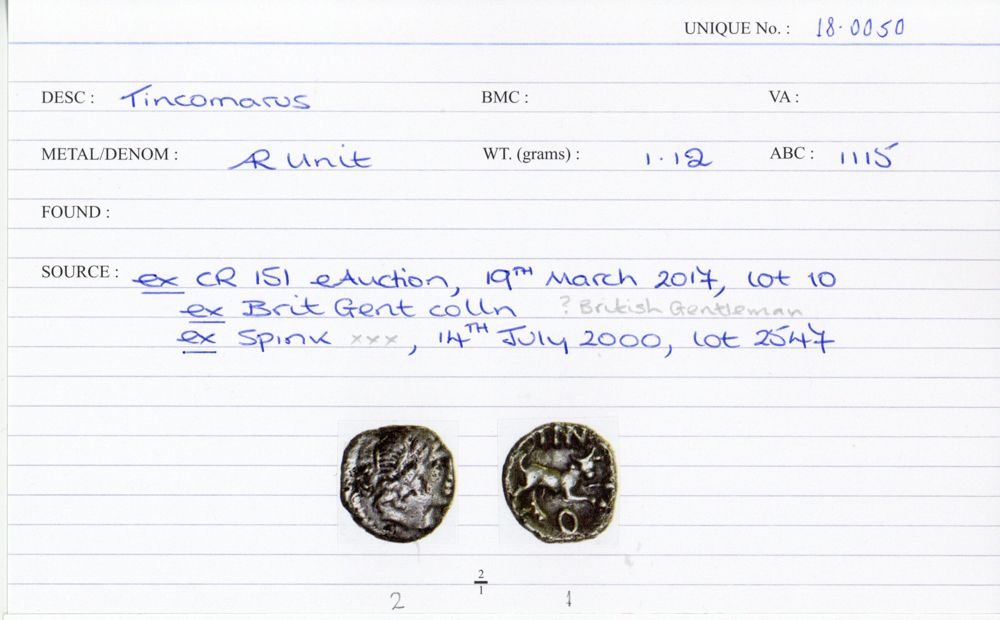 UNIQUE No. : 18.0050
DESC : Tincomarus BMC : VA :
METAL/DENOM : AR Unit WT. (grams) : 1.12 ABC : 1115
FOUND :
SOURCE : ex CR 151 eAuction, 19TH March 2017, lot 10
ex Brit Gent colln ? British Gentleman
ex Spink xxx, 14TH July 2000, lot 2547
TIN
2/1
2 1